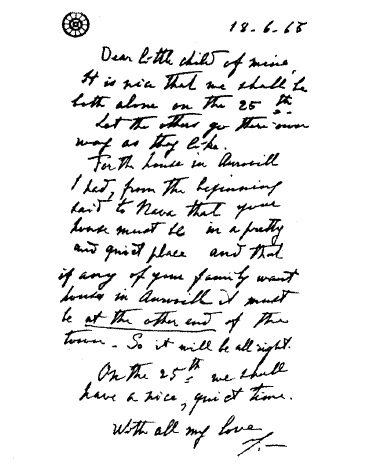 18-6-65
Dear little child of mine,
It is nice that we shall be
both alone on the 25th.
Let the others go their own
way as they like.
For the house in Auroville
I had, from the beginning
said to Nava that your
house must be in a pretty
and quiet place and that
if any of your family want
houses in Auroville it must
be at the other end of the
town. So it will be all right.
On the 25th we shall
have a nice, quiet time.
With all my love